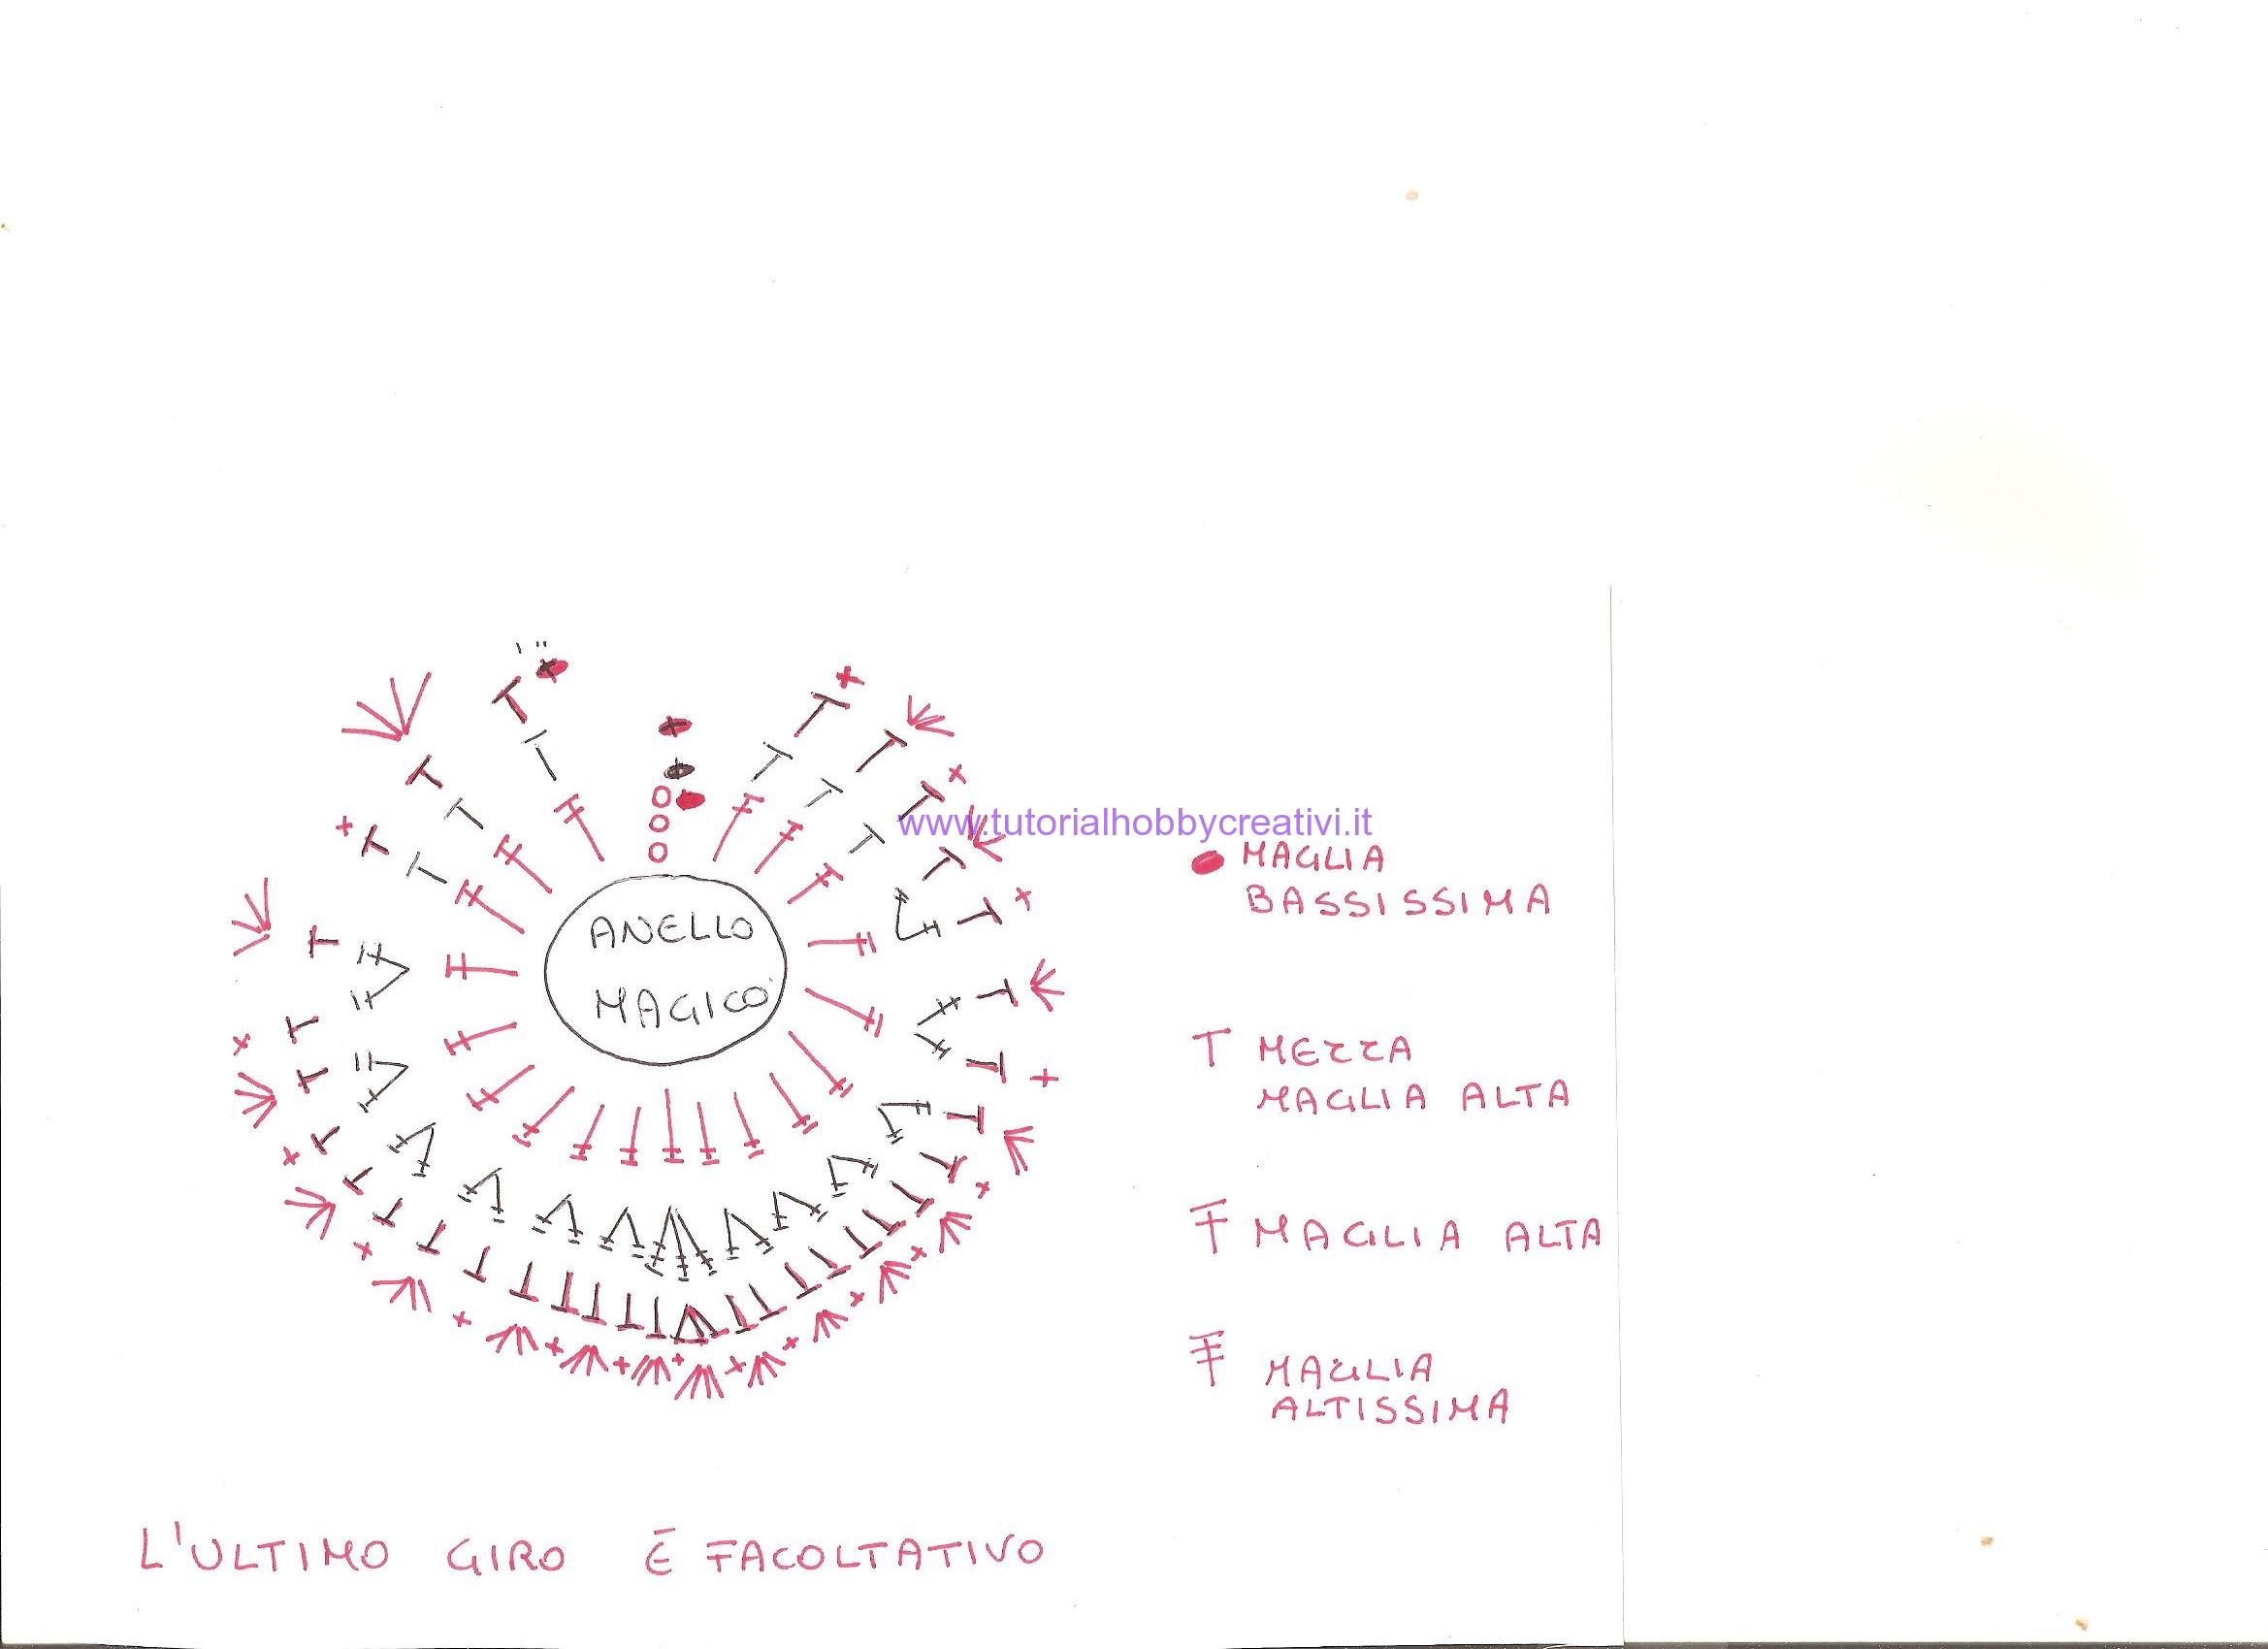 www.tutorialhobbycreativi.it
ANELLO
MAGICO
MAGLIA
BASSISSIMA
MEZZA
MAGLIA ALTA
MAGLIA ALTA
MAGLIA
ALTISSIMA
L'ULTIMO GIRO È FACOLTATIVO